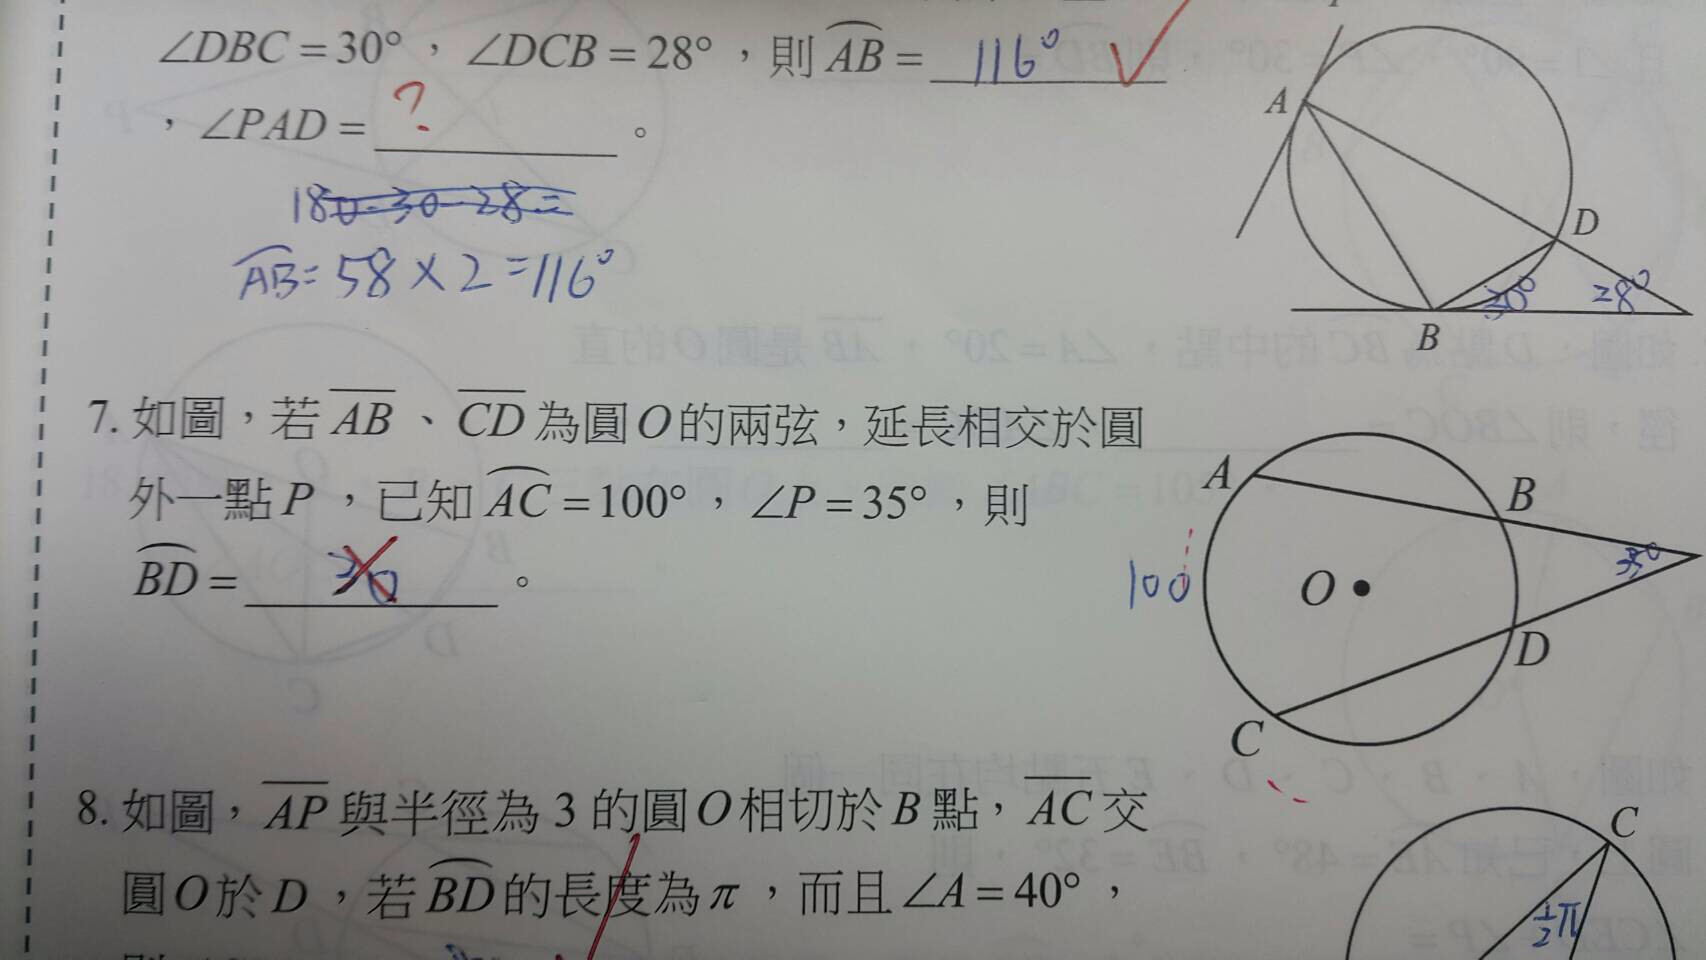 ∠DBC = 30°，∠DCB = 28°，則 AB = 116° ✓
，∠PAD = ? 。
180-30-28=
AB = 58 × 2 = 116°
A
D
30°
28°
B
7. 如圖，若 AB、CD 為圓 O 的兩弦，延長相交於圓
外一點 P，已知 AC = 100°，∠P = 35°，則
BD = 30 。
A
B
35°
100
O
D
C
8. 如圖，AP 與半徑為 3 的圓 O 相切於 B 點，AC 交
圓 O 於 D，若 BD 的長度為 π，而且 ∠A = 40°，
C
1/2 π